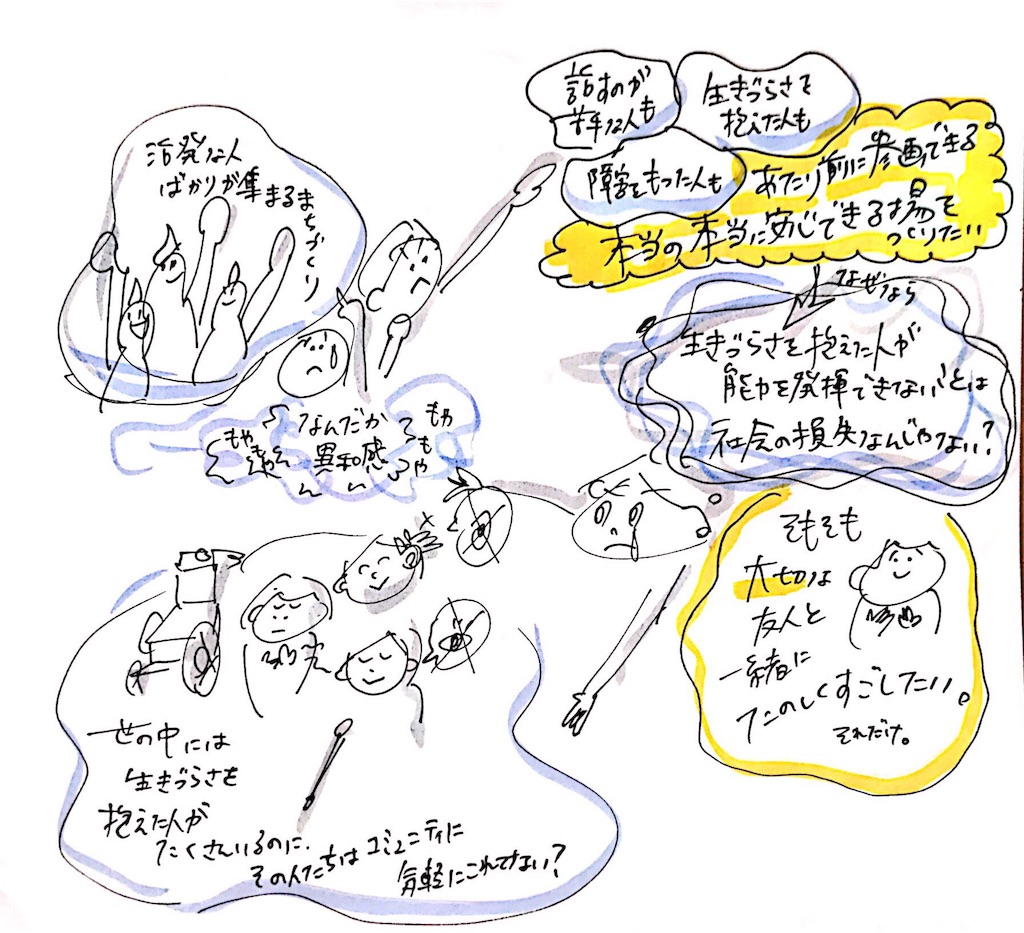 活発な人
ばかりが集まるまちづくり
なんだか
異和感
もやもや
もやもや
世の中には
生きづらさを
抱えた人が
たくさんいるのに、
その人たちはコミュニティに
気軽にこれてない？
話すのが
苦手な人も
生きづらさを
抱えた人も
障害をもった人も
あたり前に参画できる
本当の本当に安心できる場を
つくりたい
なぜなら
生きづらさを抱えた人が
能力を発揮できないとは
社会の損失なんじゃない？
そもそも
大切な
友人と
一緒に
たのしくすごしたい。
それだけ。